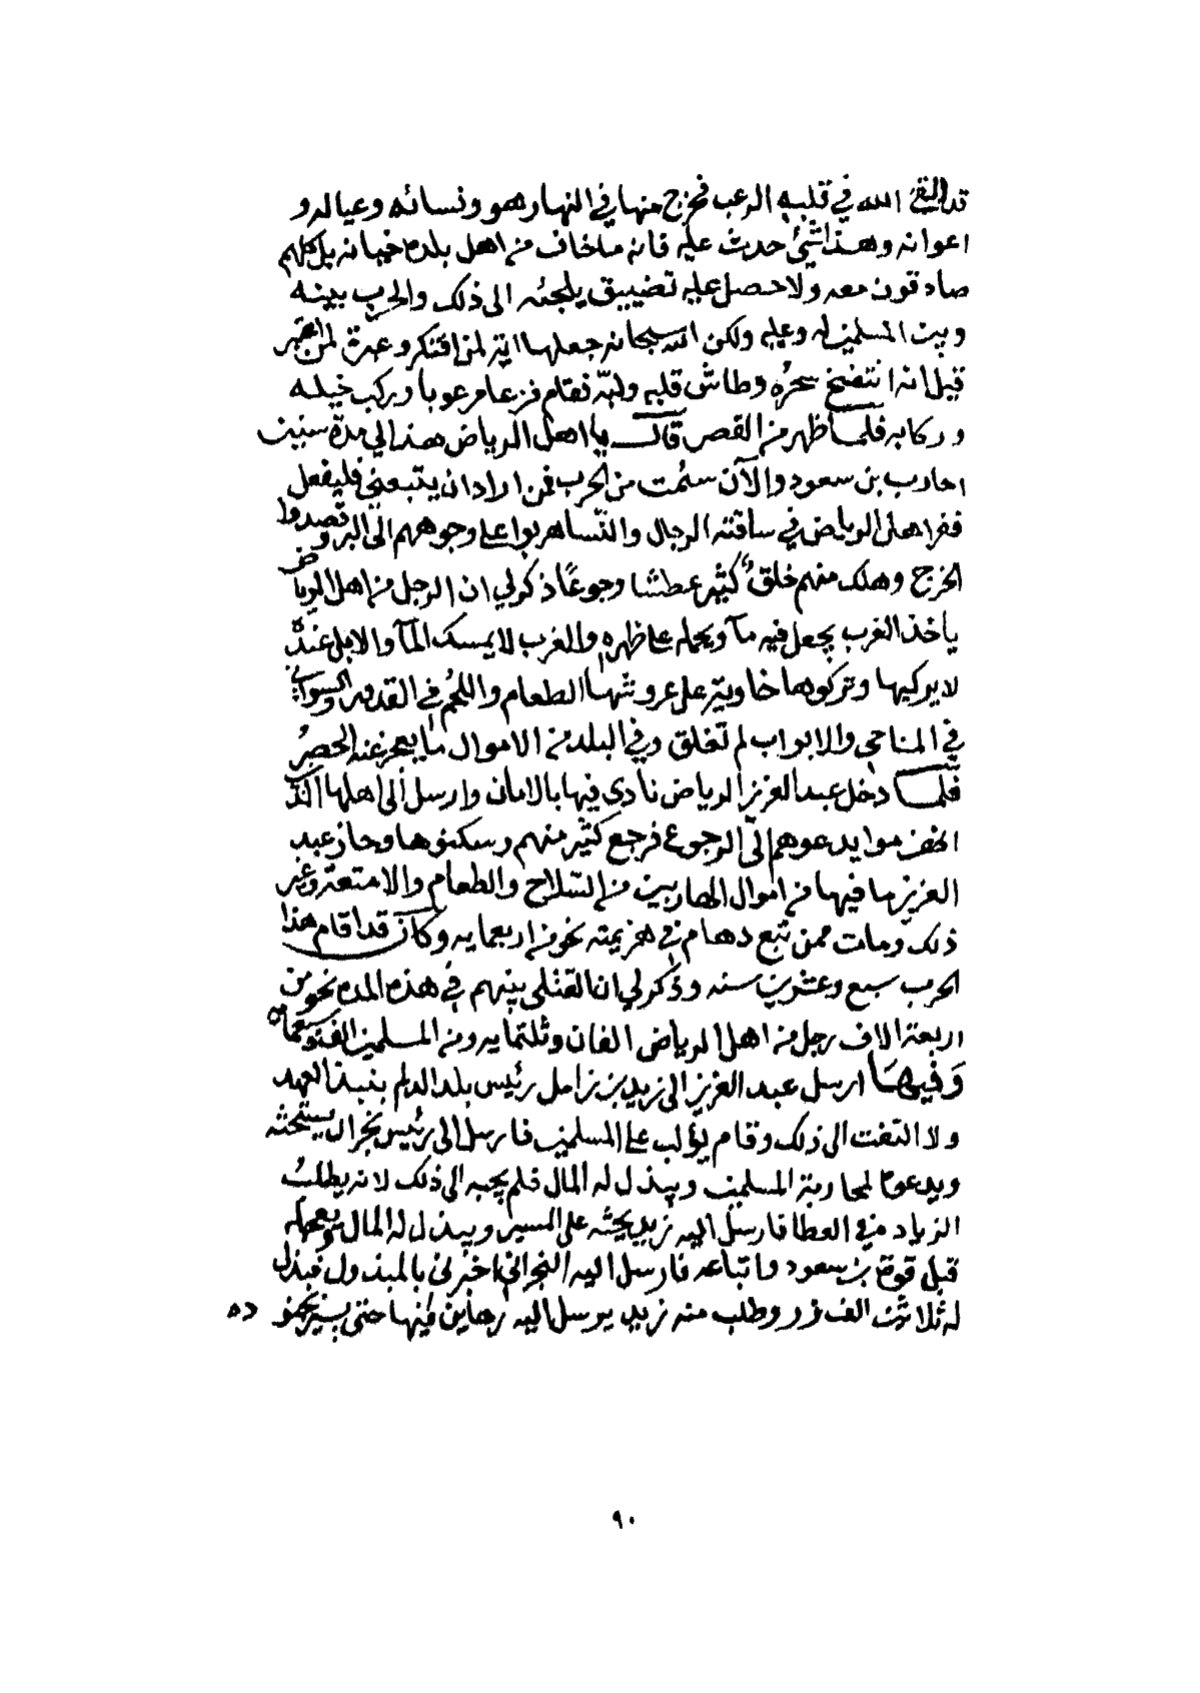 قد القى الله في قلبه الرعب فخرج منها في النهار هو ونسائه وعياله و
اعوانه وهذا شيئ حدث عليه فانه ما خاف من اهل بلده خيانه بل كلهم
صادقون معه ولا حصل عليه تضييق يلجئه الى ذلك والحرب بينه
وبين المسلمين له وعليه ولكن الله سبحانه جعلها اية لمن افتكر وعبرة لمن
قيل انه انتفخ سحره وطاش قلبه ولبّه فقام فزعا مرعوبا وركب خيله
وركابه فلما ظهر من القصر قال يا اهل الرياض هذا لي مدة سنين
احارب بن سعود والآن سئمت من الحرب فمن اراد ان يتبعني فليفعل
ففر اهل الرياض في ساقته الرجال والنسا هربوا على وجوههم الى البر وقصدوا
الخرج وهلك منهم خلق كثير عطشا وجوعًا ذكر لي ان الرجل من اهل الرياض
ياخذ الغرب يجعل فيه مآ ويحمله على ظهره والغرب لا يمسك المآ والابل عنده
لا يركبها وتركوها خاوية على عروشها الطعام واللحم في القدور والسواني
في المناحي والابواب لم تغلق وفي البلد من الاموال ما يعجز عنه الحصرُ
فلما دخل عبد العزيز الرياض نادى فيها بالامان وارسل الى اهلها الذين
انهزموا يدعوهم الى الرجوع فرجع كثير منهم وسكنوها وحاز عبد
العزيز ما فيها من اموال الهاربين من السلاح والطعام والامتعة وغير
ذلك ومات ممن تبع دهام في هزيمته نحو من اربعمايه وكان قد اقام هذا
الحرب سبع وعشرين سنه وذكر لي ان القتلى بينهم في هذه المده نحو من
اربعة الاف رجل من اهل الرياض الفان وثلثمايه ومن المسلمين الف وسبعماة
وفيها ارسل عبد العزيز الى زيد بن زامل رئيس بلد الدلم ينبذ العهد
ولا التفت الى ذلك وقام يؤلب على المسلمين فارسل الى رئيس نجران يستحثه
ويدعوه لمحاربة المسلمين ويبذل له المال فلم يجبه الى ذلك لانه يطلبُ
الزياده في العطا فارسل اليه زيد يحثه على المسير ويبذل له المال
قبل قوة بن سعود واتباعه فارسل اليه النجراني اخبرني بالمبذول فبذل
له ثلاثين الف زر وطلب منه زيد يرسل اليه رهاين فيها حتى يسير بجنو ده
٩٠